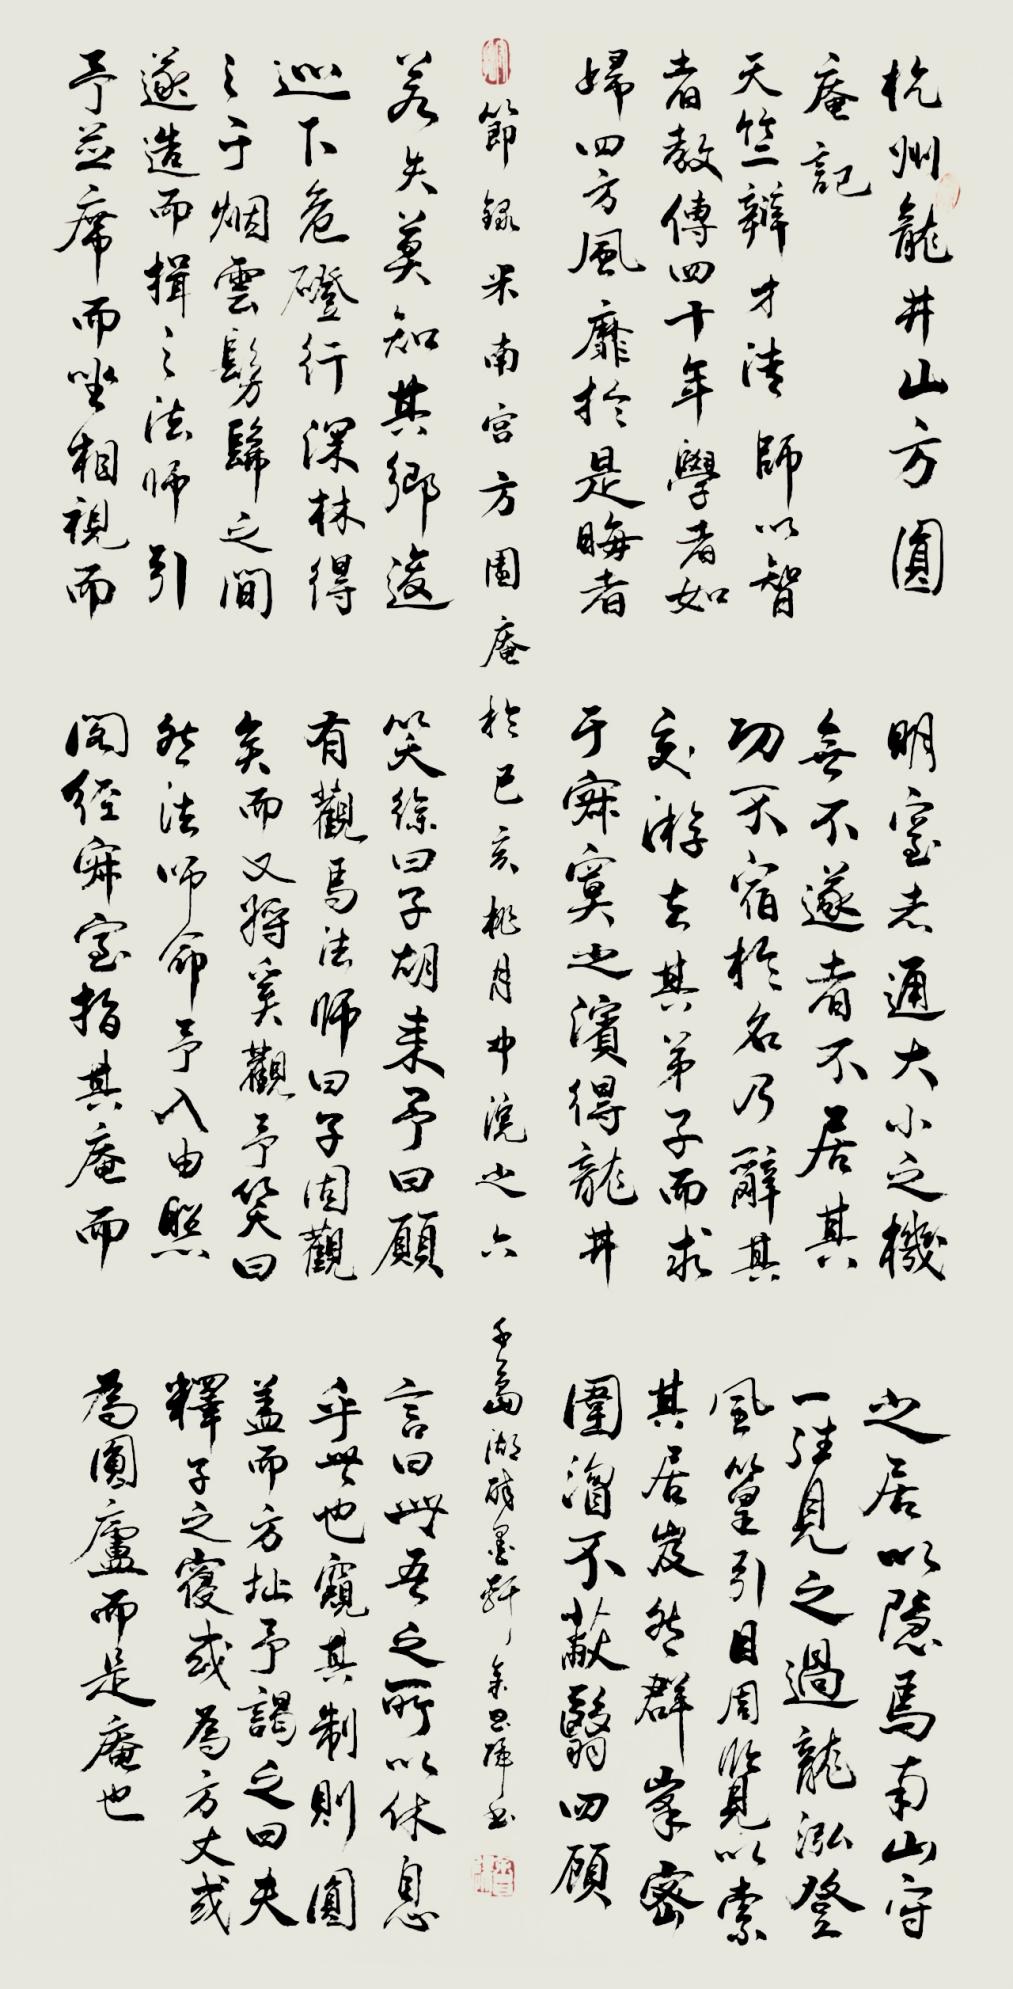 杭州龍井山方圓
庵記
天竺辯才法師以智
者教傳四十年學者如
歸四方風靡於是晦者
明窒者通大小之機
無不遂者不居其
功不宿於名乃辭其
交游去其弟子而求
于寂寞之濱得龍井
之居以隱焉南山守
一往見之過龍泓登
風篁引目周覽以索
其居岌然群峯密
圍溘不蔽翳四顧
若失莫知其鄉逡
巡下危磴行深林得
之于烟雲髣髴之間
遂造而揖之法師引
予並席而坐相視而
笑徐曰子胡來予曰願
有觀焉法師曰子固觀
矣而又將奚觀予笑曰
然法師命予入由照
閣經寂室指其庵而
言曰此吾之所以休息
乎此也窺其制則圓
蓋而方址予謁之曰夫
釋子之寢或為方丈或
為圓廬而是庵也
節錄米南宮方圓庵於己亥桃月中浣之六 千島湖醉墨軒 書